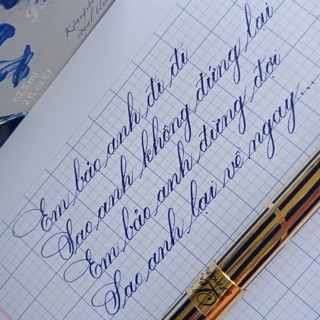 Em bảo anh đi đi
Sao anh không đứng lại
Em bảo anh đừng đợi
Sao anh lại về ngay...
62.5ml